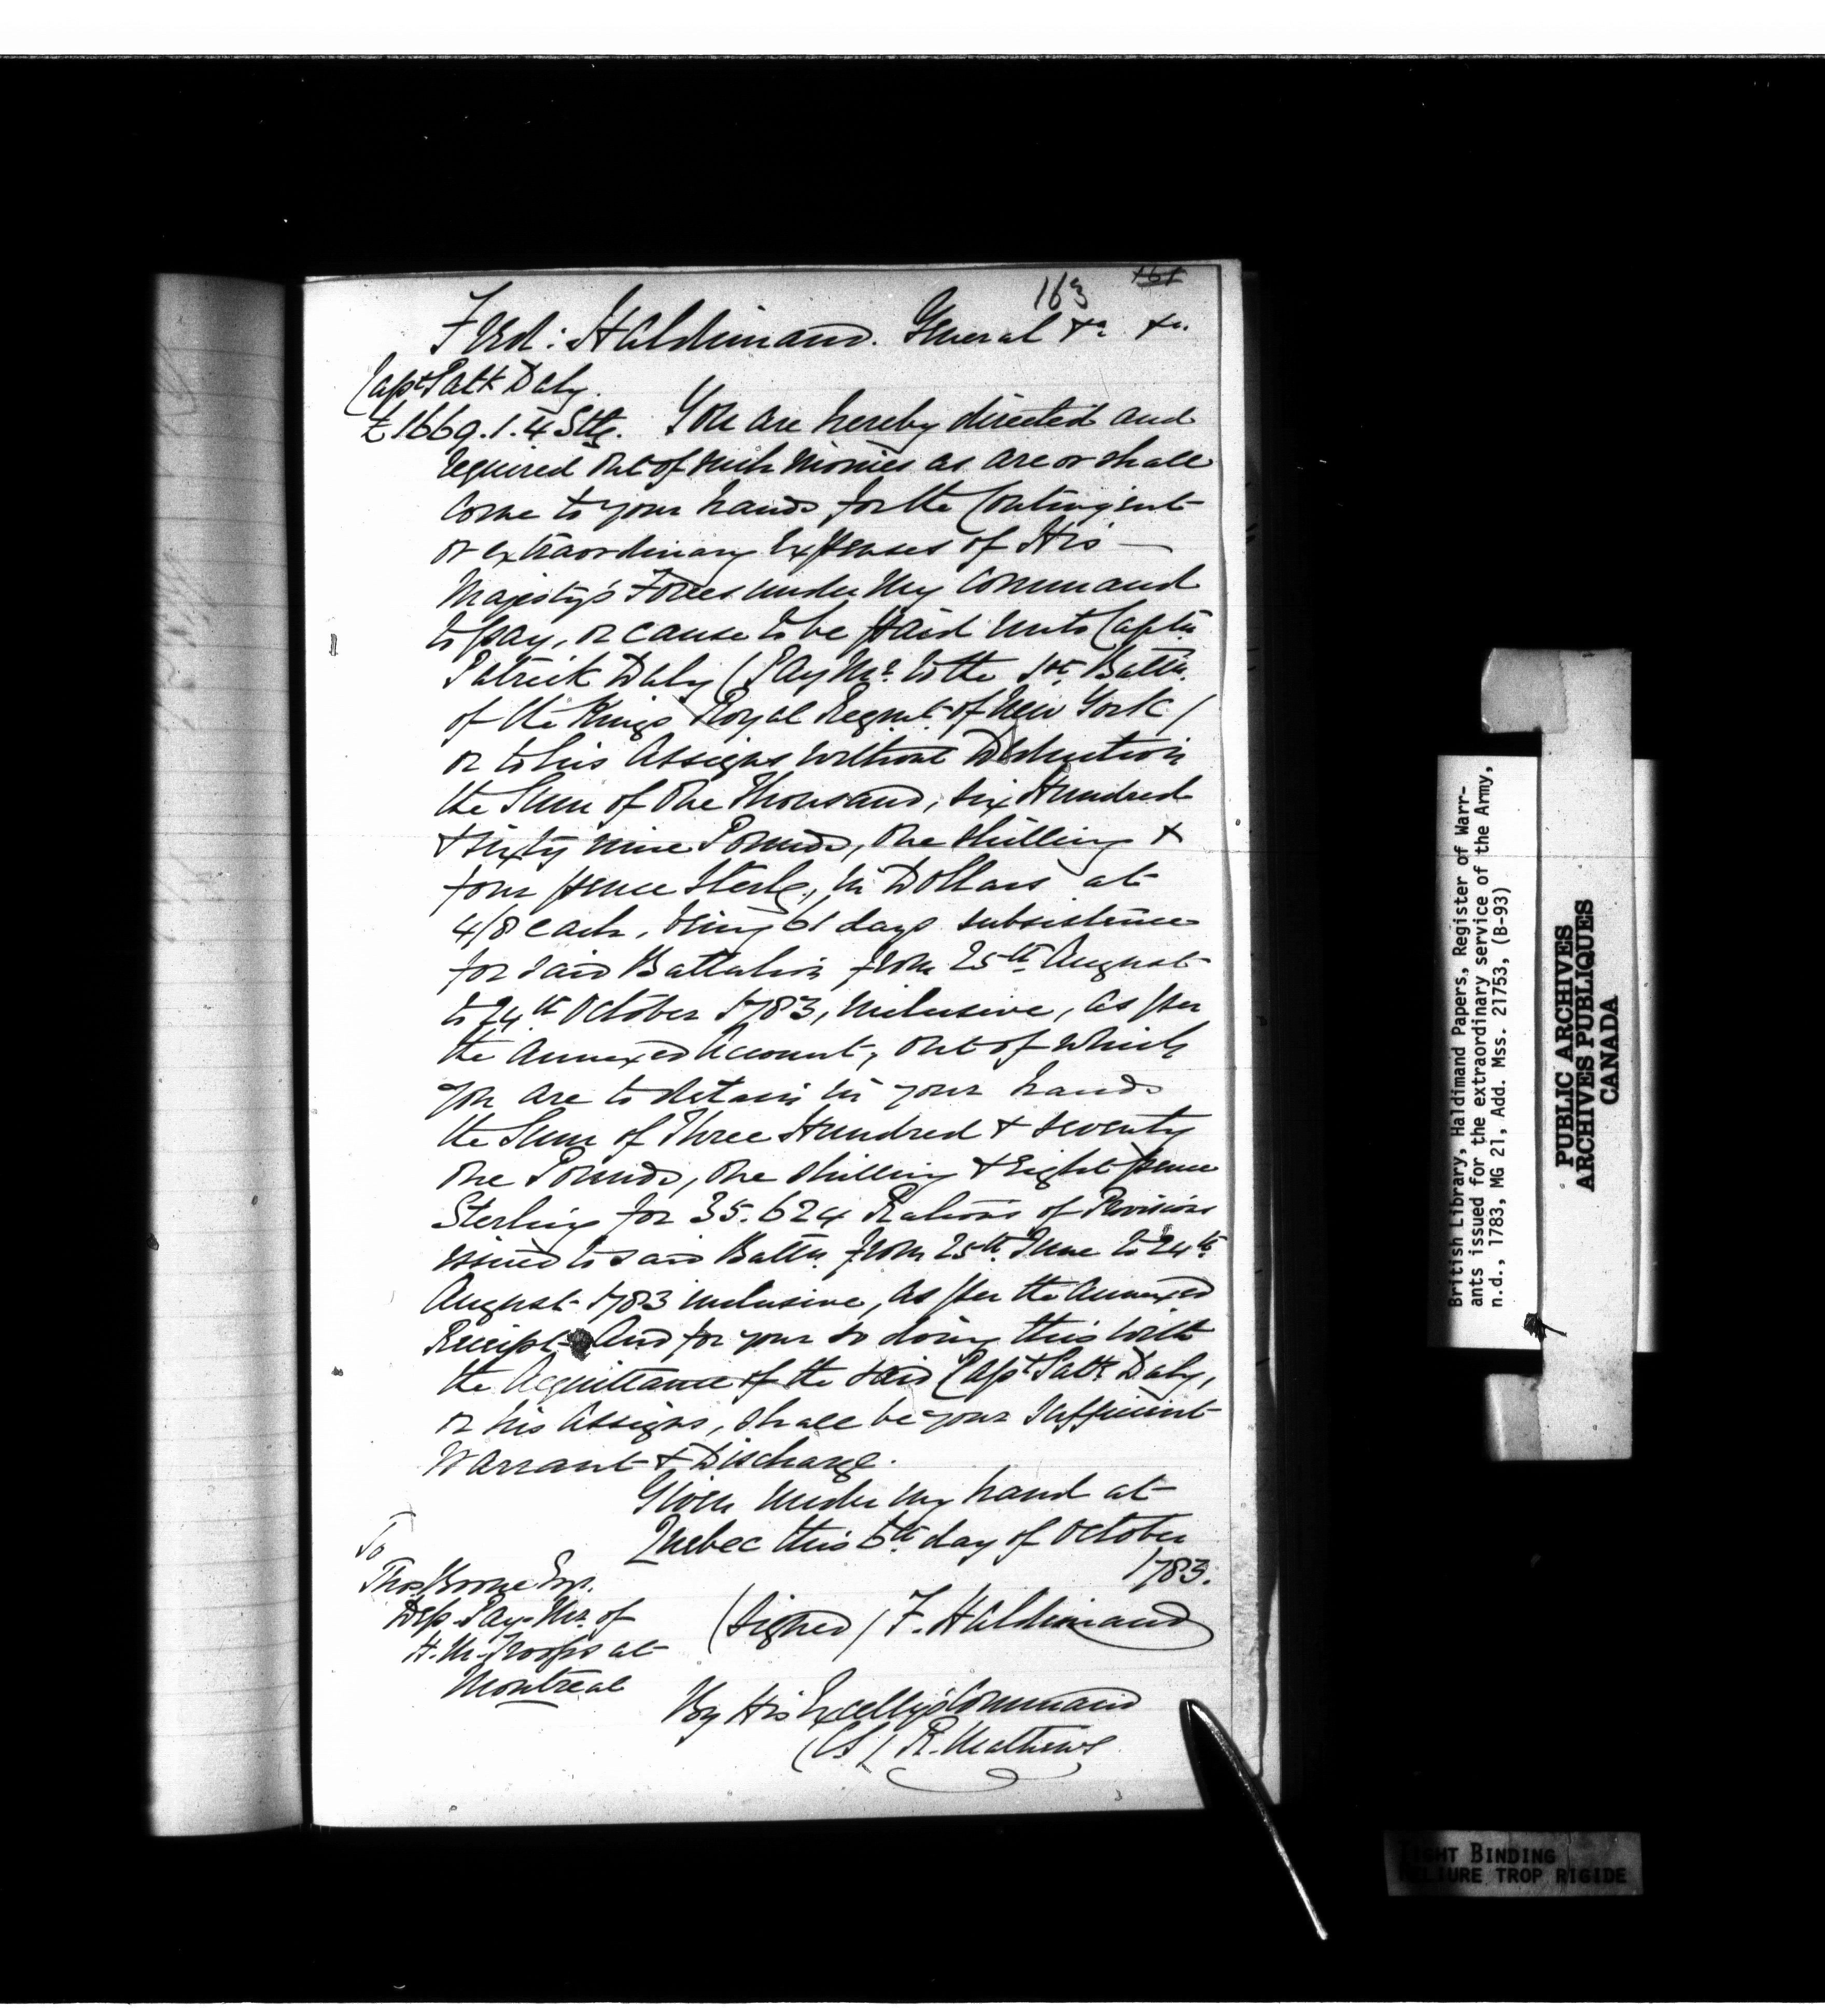 163 161
Ferd: Haldimand. General &a &a.
Capt Patk Daly.
£1669.1.4 Stg. You are hereby directed and
required out of such monies as are or shall
Come to your hands for the Contingent
or extraordinary Expenses of His —
Majesty's Forces under My Command
to pay, or cause to be paid unto Captn
Patrick Daly (Pay Mr. to the 1st. Battn.
of the Kings Royal Regmt. of New York)
or to his Assigns without Deduction
the Sum of One Thousand, six Hundred
& sixty nine Pounds, One shilling &
four pence Sterlg, in Dollars at
4/8 each, being 61 days subsistence
for said Battalion from 25th August
to 24th October 1783, inclusive, as per
the annexed Account, out of which
you are to detain in your hands
the Sum of Three Hundred & seventy
One Pounds, One shilling & Eight pence
Sterling for 35.624 Rations of Provisions
issued to said Battn. from 25th June to 24th
August 1783 inclusive, as per the annexed
Receipt And for your so doing this with
the Acquittance of the said Capt Patk Daly,
or his Assigns, shall be your Sufficient
Warrant & Discharge.
Given under my hand at
Quebec this 6th day of October
1783.
To
Thos Boone Esqr.
Dep. Pay. Mr. of
H. M. Troops at
Montreal
(Signed) F. Haldimand
By His Excelly's Command
(Sd) R. Mathews
British Library, Haldimand Papers, Register of Warr-
ants issued for the extraordinary service of the Army,
n.d., 1783, MG 21, Add. Mss. 21753, (B-93)
PUBLIC ARCHIVES
ARCHIVES PUBLIQUES
CANADA
TIGHT BINDING
RELIURE TROP RIGIDE